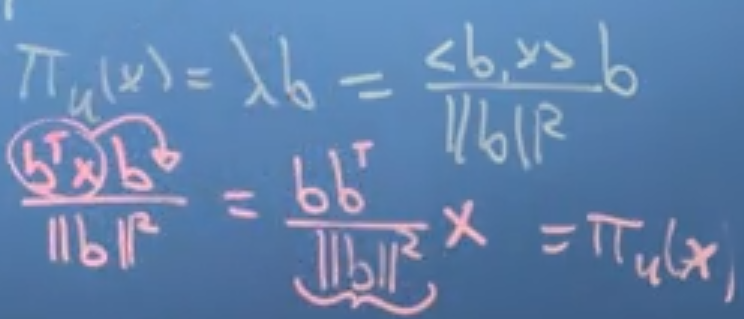 π_u(x) = λb = <b,x>/‖b‖² b
bᵀx b/‖b‖² = bbᵀ/‖b‖² x = π_u(x)